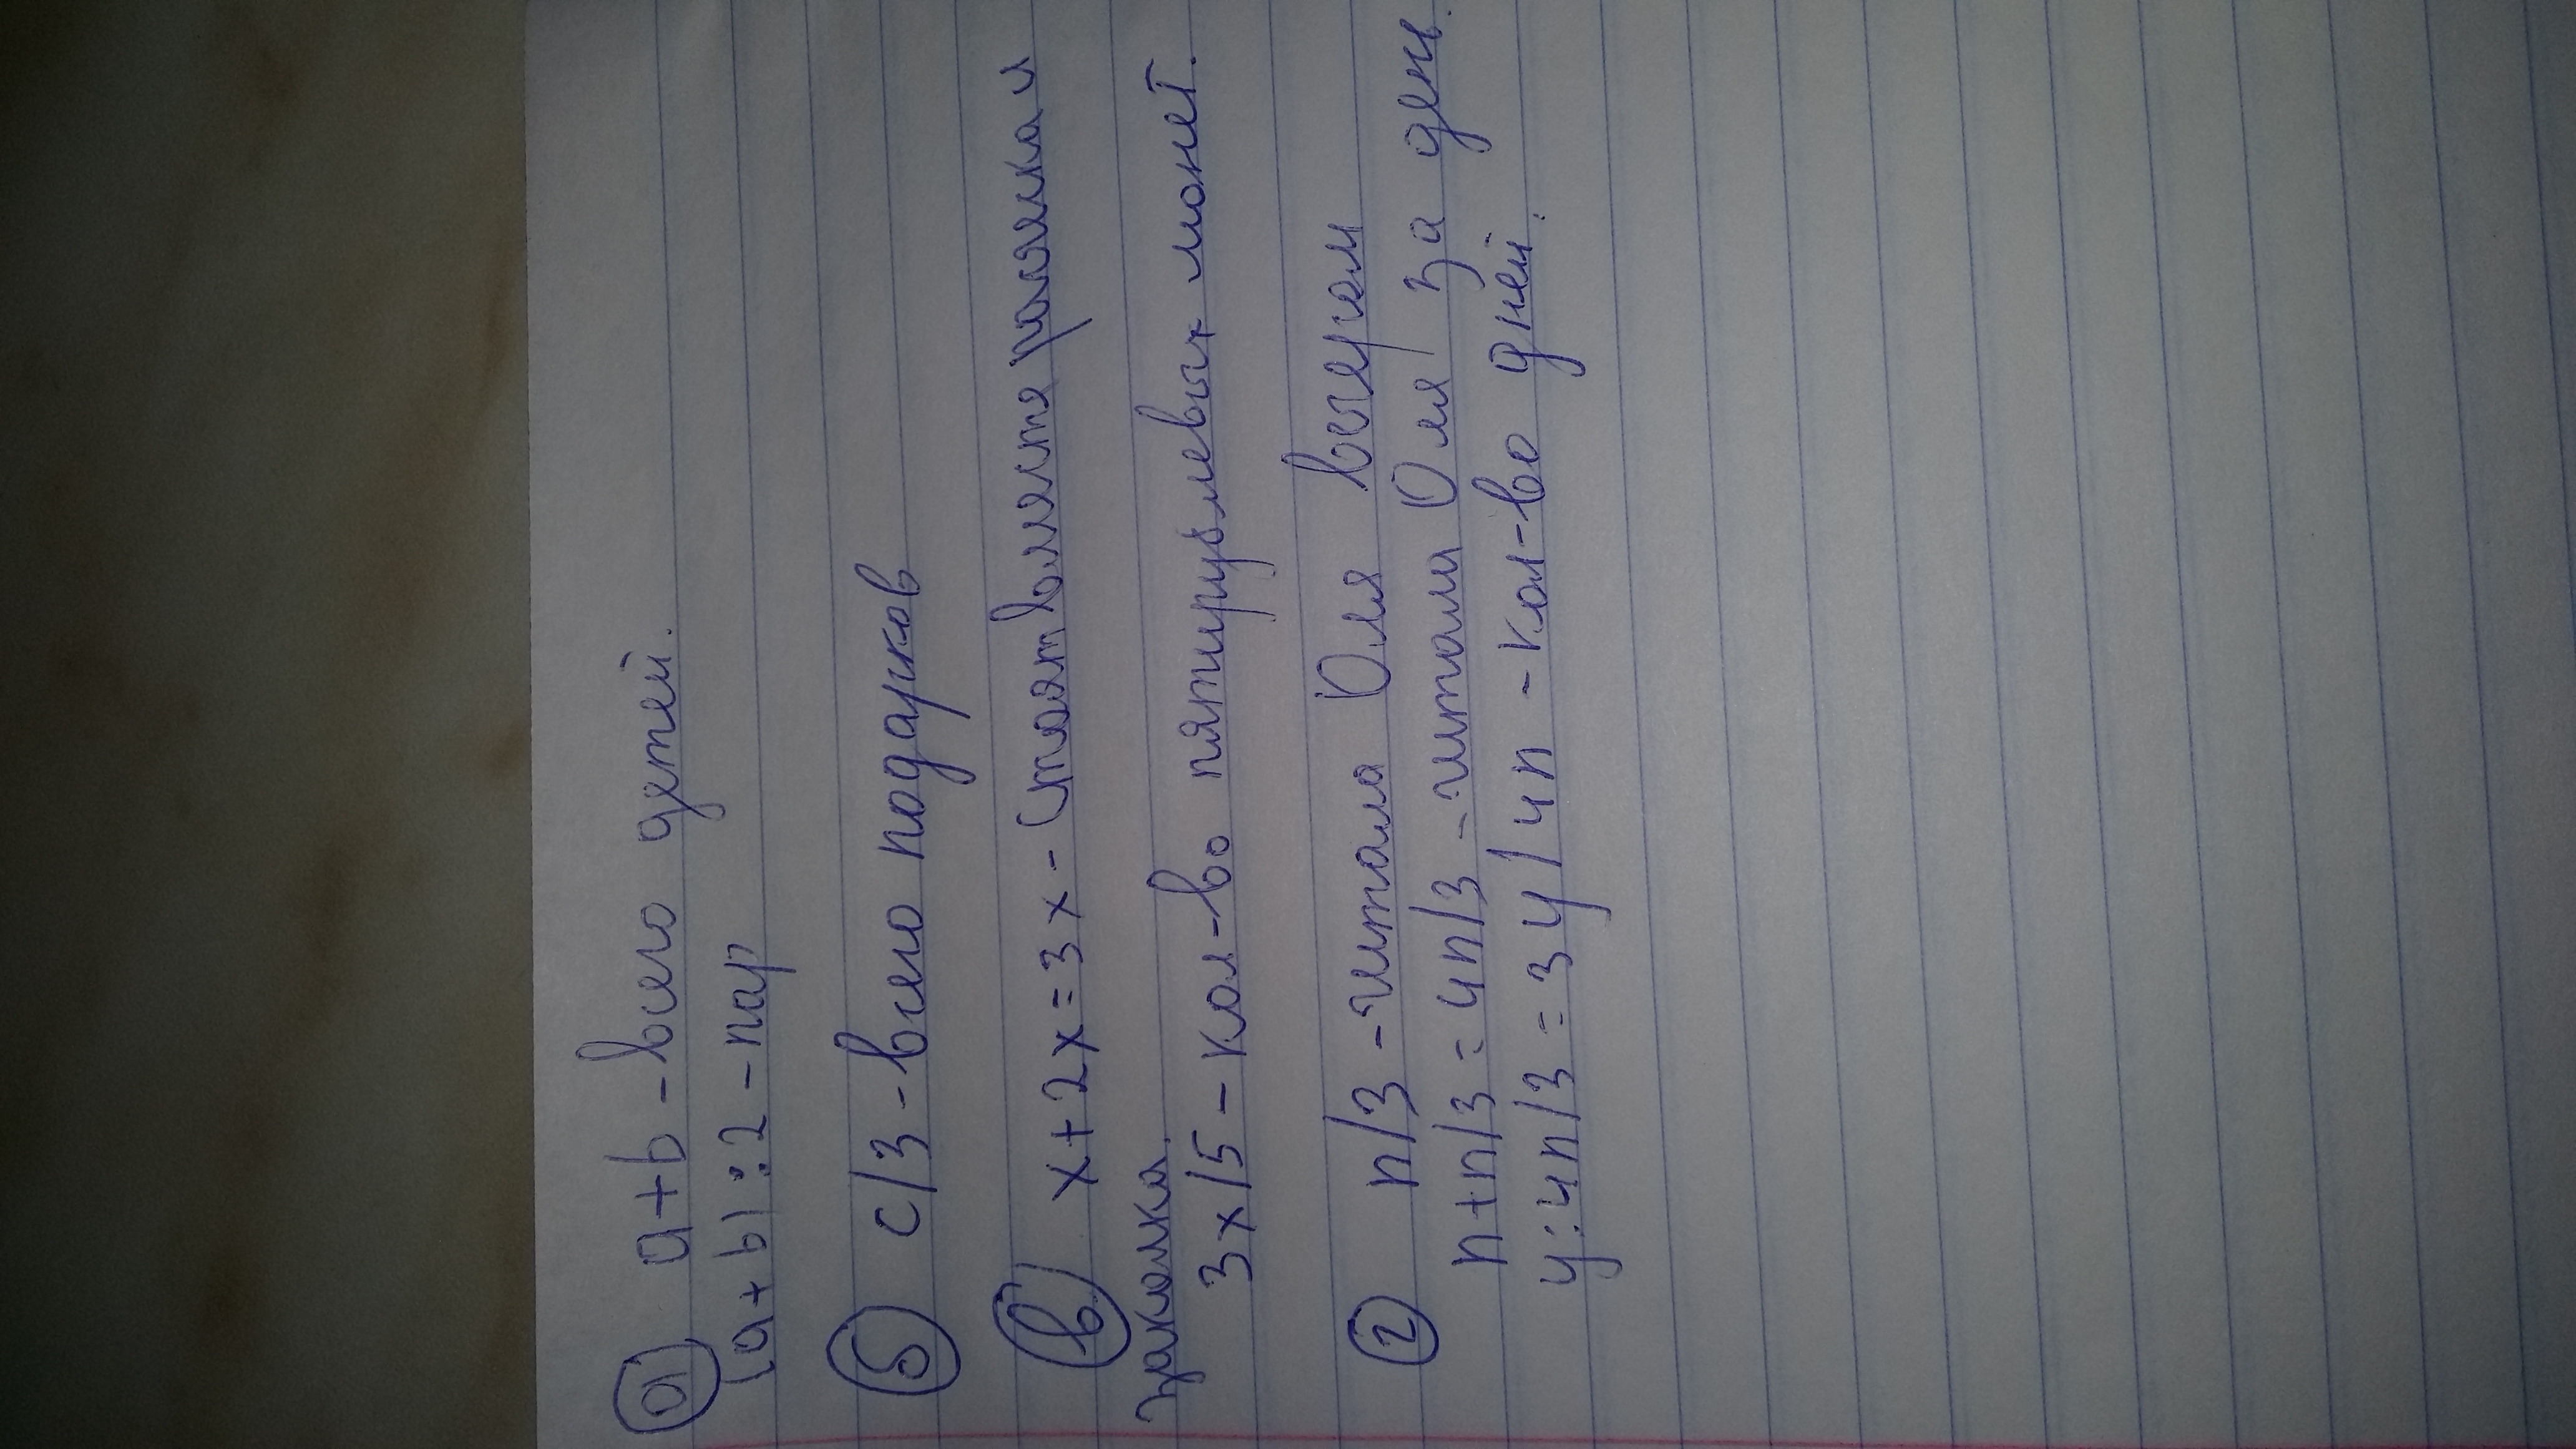 а) a+b - всего детей.
(a+b):2 - пар
б) c/3 - всего подарков
в) x+2x=3x - стоят вместе ромашка и
заколка.
3x/5 - кол-во пятирублевых монет.
г) n/3 - читала Оля вечером
n+n/3=4n/3 - читала Оля за день.
y:4n/3=3y/4n - кол-во дней.